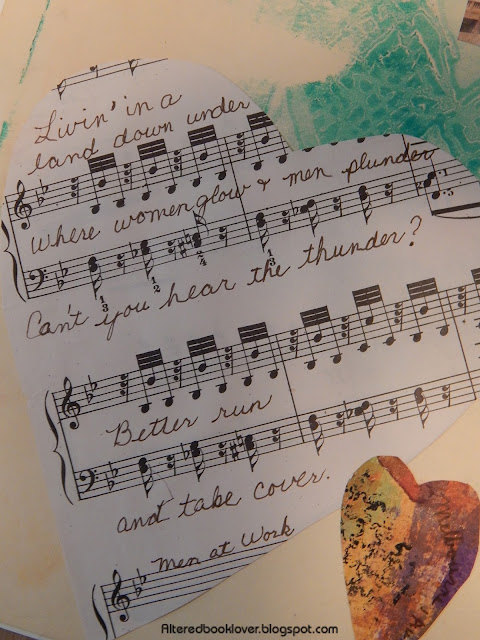 Livin' in a
land down under
Where women glow & men plunder
Can't you hear the thunder?
Better run
and take cover.
Men at Work
Alteredbooklover.blogspot.com